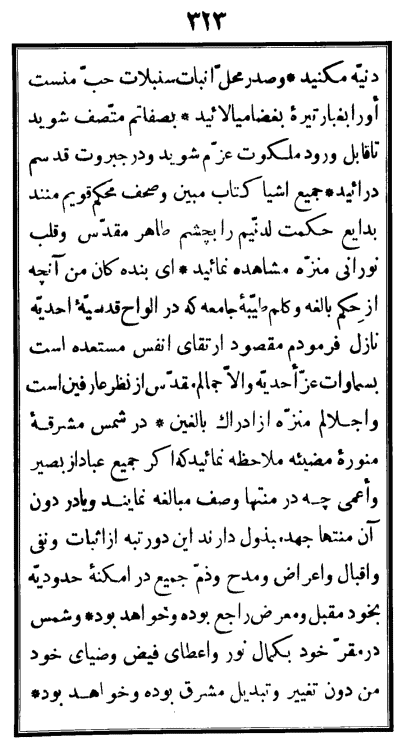 ٣٢٣
دنیّه مکنید * وصدر محلّ انبات سنبلات حبّ منست
أورا بغبار تیرۀ بغضا میالائید * بصفاتم متّصف شوید
تا قابل ورود ملکوت عزّم شوید ودر جبروت قدسم
درائید * جمیع اشیا کتاب مبین وصحف محکم قویم منند
بدایع حکمت لدنّیم را بچشم طاهر مقدّس وقلب
نورانی منزّه مشاهده نمائید * ای بنده کان من آنچه
از حِکَم بالغه وکلم طیّبۀ جامعه که در الواح قدسیّۀ احدیّه
نازل فرمودم مقصود ارتقای انفس مستعده است
بسماوات عزّ أحدیّه والاّ جمالم مقدّس از نظر عارفین است
واجلالم منزّه از ادراك بالغین * در شمس مشرقۀ
منورۀ مضیئه ملاحظه نمائید که اکر جمیع عباد از بصیر
وأعمی چه در منتها وصف مبالغه نمایند ویا در دون
آن منتها جهد مبذول دارند این دو رتبه از اثبات ونفی
واقبال واعراض ومدح وذمّ جمیع در امکنۀ حدودیّه
بخود مقبل ومعرض راجع بوده وخواهد بود * وشمس
در مقرّ خود بکمال نور واعطای فیض وضیای خود
من دون تغییر وتبدیل مشرق بوده وخواهد بود *